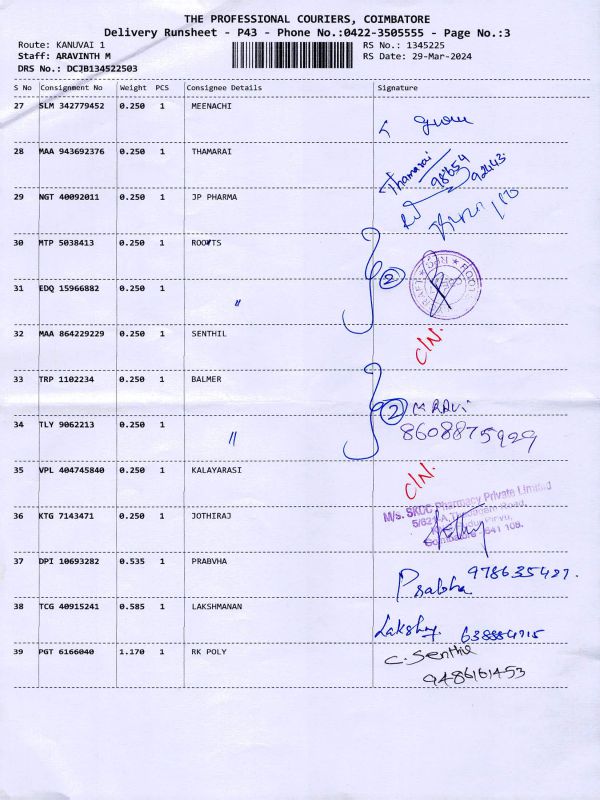 THE PROFESSIONAL COURIERS, COIMBATORE
Delivery Runsheet - P43 - Phone No.:0422-3505555 - Page No.:3
Route: KANUVAI 1 RS No.: 1345225
Staff: ARAVINTH M RS Date: 29-Mar-2024
DRS No.: DCJB134522503
S No Consignment No Weight PCS Consignee Details Signature
27 SLM 342779452 0.250 1 MEENACHI
28 MAA 943692376 0.250 1 THAMARAI
Thamarai 98654 92443
29 NGT 40092011 0.250 1 JP PHARMA
30 MTP 5038413 0.250 1 ROOTS
2
31 EDQ 15966882 0.250 1 "
32 MAA 864229229 0.250 1 SENTHIL C/N.
33 TRP 1102234 0.250 1 BALMER
2 RAVi
34 TLY 9062213 0.250 1 " 8608875929
35 VPL 404745840 0.250 1 KALAYARASI C/N.
M/s. SKCC Pharmacy Private Limited
36 KTG 7143471 0.250 1 JOTHIRAJ
Coimbatore - 641 108.
37 DPI 10693282 0.535 1 PRABVHA
Prabha 978635427.
38 TCG 40915241 0.585 1 LAKSHMANAN
Lakshy. 638884715
39 PGT 6166040 1.170 1 RK POLY C. Senthil
9486161453